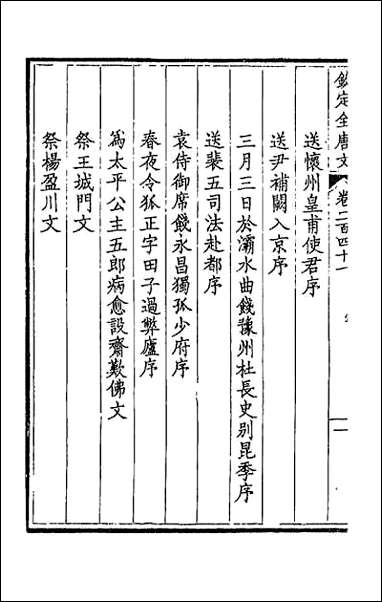 欽定全唐文
卷二百四十一
一
送懷州皇甫使君序
送尹補闕入京序
三月三日於灞水曲餞豫州杜長史别昆季序
送裴五司法赴都序
袁侍御席餞永昌獨孤少府序
春夜令狐正字田子過弊廬序
爲太平公主五郎病愈設齋歎佛文
祭王城門文
祭楊盈川文